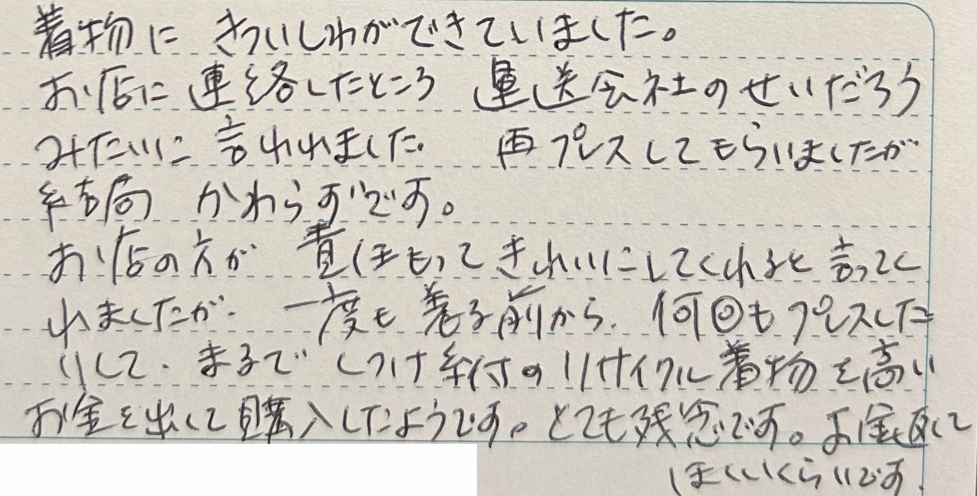 着物に きついしわができていました。
お店に 連絡したところ 運送会社のせいだろう
みたいに 言われました。 再プレスしてもらいましたが
結局 かわらずです。
お店の方が 責任もって きれいにしてくれると 言ってく
れましたが、一度も 着る前から、何回も プレスした
りして、まるで しつけ糸付の リサイクル着物を高い
お金を出して購入したようです。とても残念です。お金返して
ほしいくらいです。